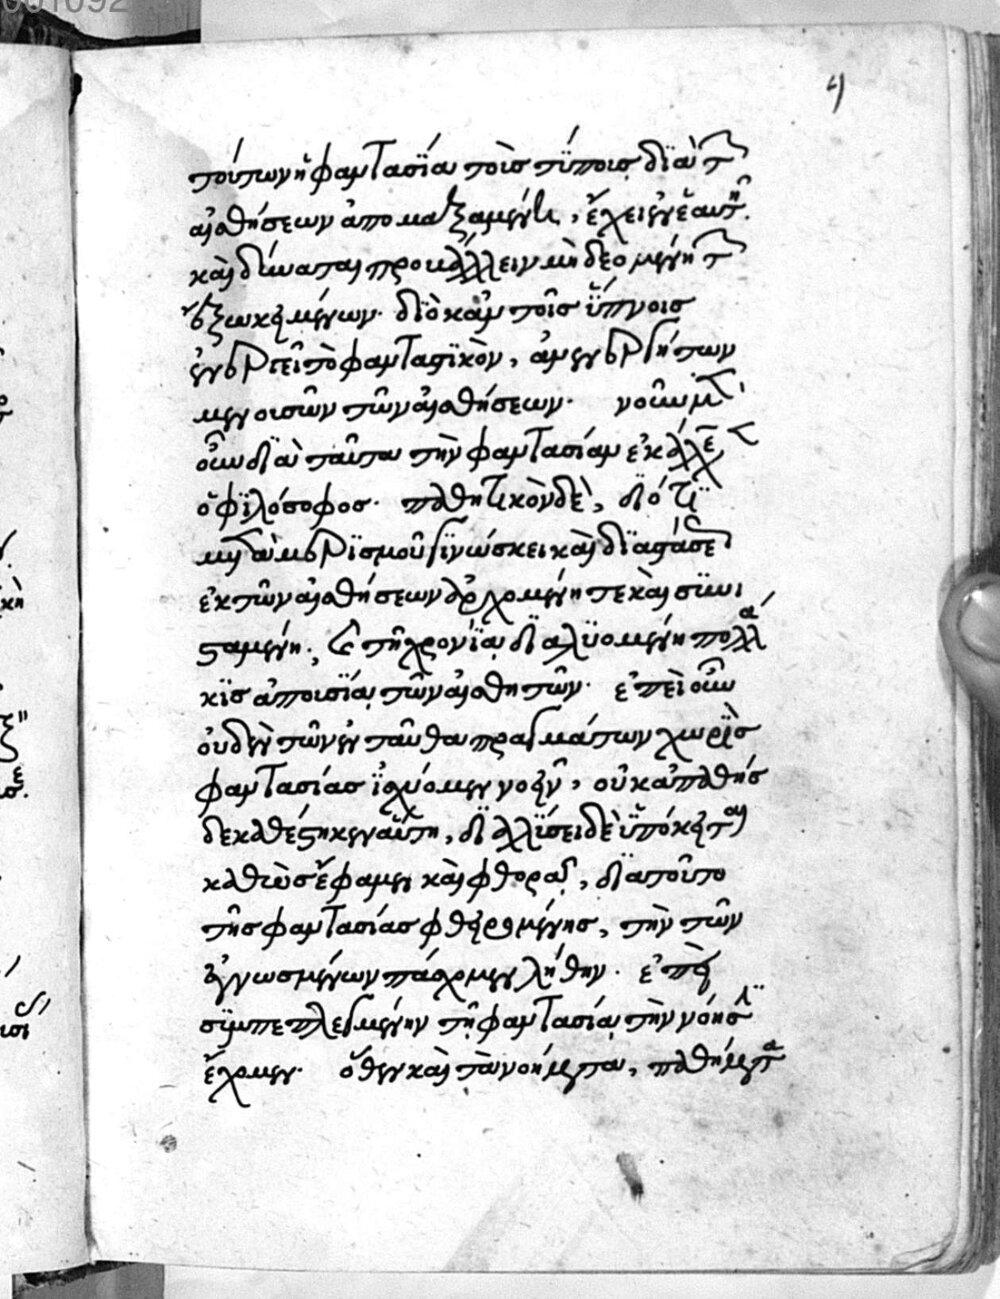 001092
τούτων ἡ φαντασία τοῖς τύποις διὰ τ
αἰσθήσεων ἀπομαξαμένη, ἔχει ἐν ἑαυτῇ.
καὶ δύναται προβάλλειν μὴ δεομένη τ
ἔξω κειμένων. διὸ κἀν τοῖς ὕπνοις
ἐνεργεῖ τὸ φανταστικὸν, ἀνενεργήτων
μενουσῶν τῶν αἰσθήσεων. νοῦν μ
οὖν διὰ ταῦτα τὴν φαντασίαν ἐκάλε
ὁ φιλόσοφος. παθητικὸν δὲ, διότι
μετὰ μερισμοῦ γινώσκει καὶ διαστάσε
ἐκ τῶν αἰσθήσεων ἀρχομένη τε καὶ συνι
σταμένη. καὶ τῇ χρονίᾳ διαλυομένη πολλά
κις ἀπουσίᾳ τῶν αἰσθητῶν. ἐπεὶ οὖν
οὐδὲν τῶν ἐνταῦθα πραγμάτων χωρὶς
φαντασίας ἰσχύομεν νοεῖν, οὐκ ἀπαθὴς
δὲ καθέστηκεν αὕτη, διαλύσει δὲ ὑπόκειται
καθὼς ἔφαμεν καὶ φθορᾷ, διὰ τοῦτο
τῆς φαντασίας φθειρομένης, τὴν τῶν
ἐγνωσμένων πάσχομεν λήθην. ἐπεὶ
συμπεπλεγμένην τῇ φαντασίᾳ τὴν νόησιν
ἔχομεν. ὅθεν καὶ τὰ νοήματα, παθήματα